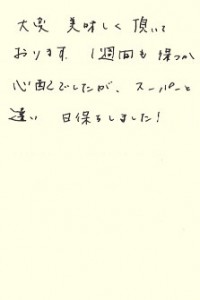 大変 美味しく頂いて
おります。1週間も保つか
心配でしたが、スーパーと
違い 日保ちしました!